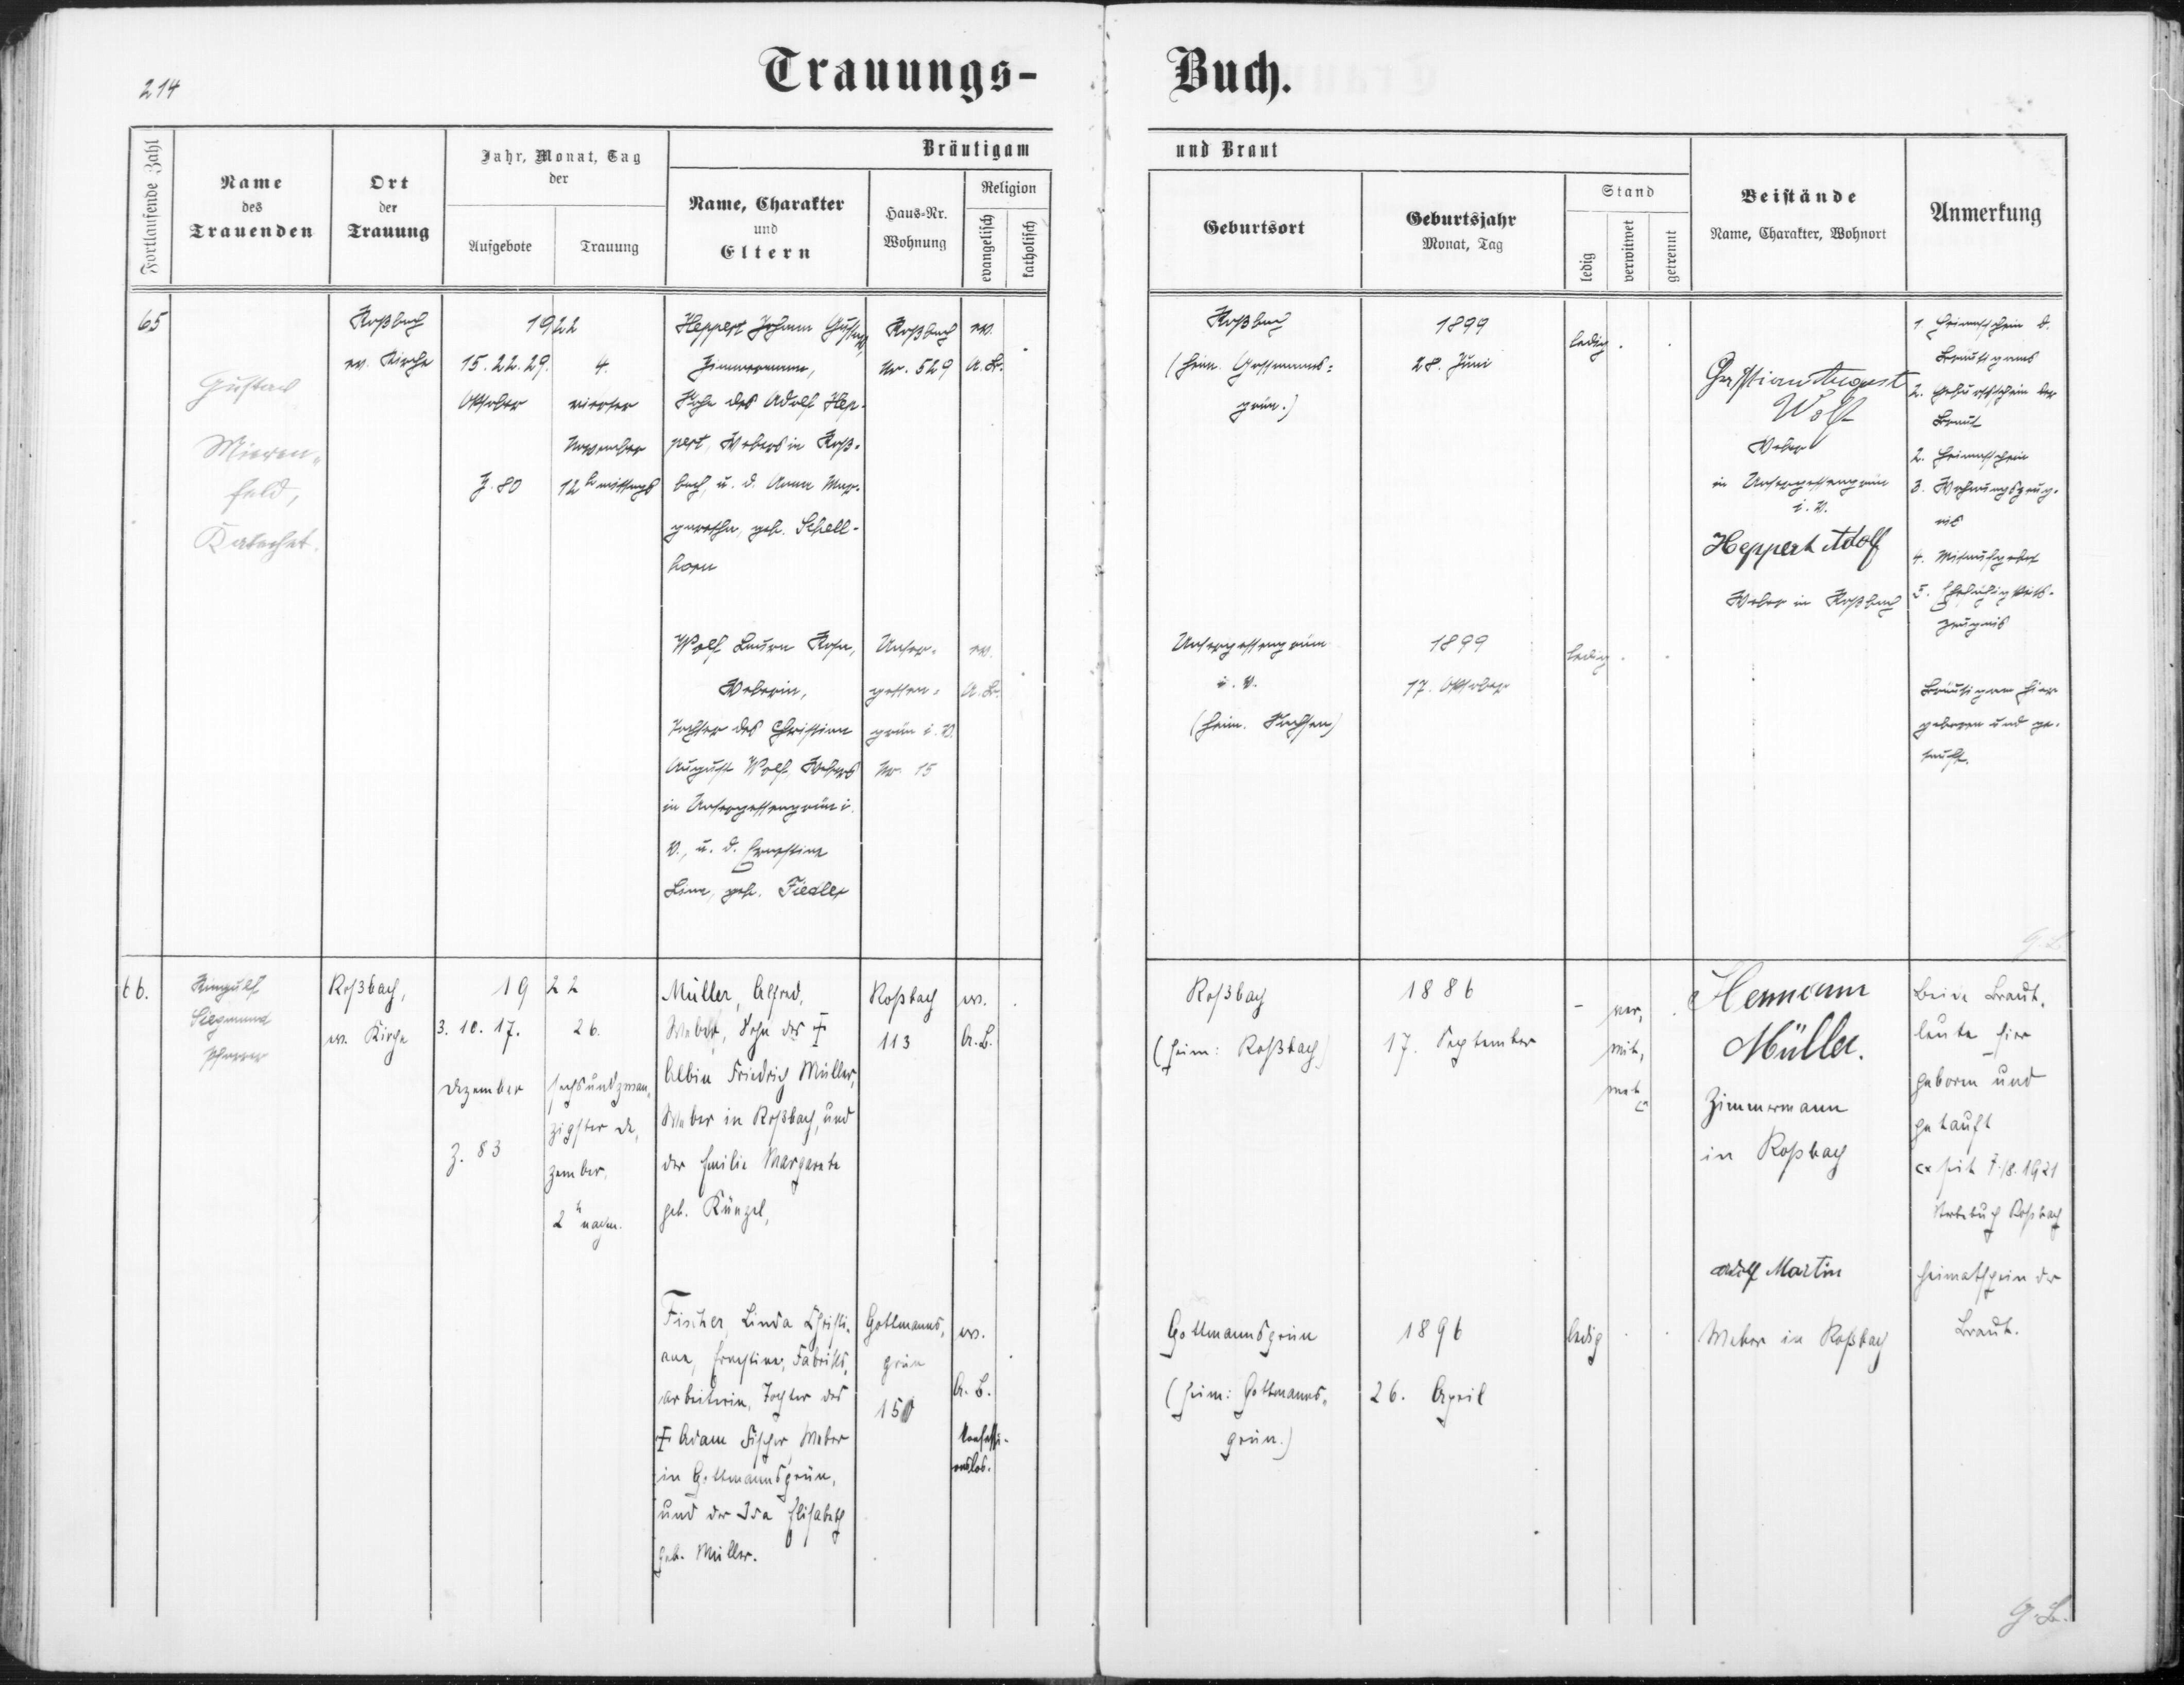 214
Trauungs-
Buch.
Fortlaufende Zahl
Name
des
Trauenden
Ort
der
Trauung
Jahr, Monat, Tag
der
Aufgebote
Trauung
Bräutigam
Name, Charakter
und
Eltern
Haus-Nr.
Wohnung
Religion
evangelisch
katholisch
und Braut
Geburtsort
Geburtsjahr
Monat, Tag
Stand
ledig
verwitwet
getrennt
Beistände
Name, Charakter, Wohnort
Anmerkung
65
Gustav
Mieren-
feld,
Katechet.
Roßbach
ev. Kirche
1922
15. 22. 29.
Oktober
Z. 80
4.
vierter
November
12h mittags
Heppert Johann Gustav,
Zimmermann,
Sohn des Adolf Hep-
pert, Webers in Roß-
bach, u. d. Anna Mar-
garetha, geb. Schell-
horn
Roßbach
Nr. 529
ev.
A. B.
Roßbach
(heim. Gottmanns-
grün.)
1899
28. Juni
ledig
Christian August
Wolf
Weber
in Untergettengrün
i. V.
Heppert Adolf
Weber in Roßbach
1. Heimatschein d.
Bräutigams
2. Geburtsschein der
Braut
2. Heimatschein
3. Wohnungszeug-
nis
4. Mitaufgebot
5. Ehefähigkeits-
zeugnis
Bräutigam hier
geboren und ge-
tauft.
Wolf Laura Rosa,
Weberin,
Tochter des Christian
August Wolf, Webers
in Untergettengrün i.
V., u. d. Ernestine
Lina, geb. Fiedler
Unter-
getten-
grün i. V.
Nr. 15
ev.
A. B.
Untergettengrün
i. V.
(heim. Sachsen)
1899
17. Oktober
ledig
66.
Siegmund
Pfarrer
Roßbach,
ev. Kirche
1922
3. 10. 17.
Dezember
Z. 83
26.
sechsundzwan-
zigster De-
zember,
2 h nachm.
Müller, Alfred,
Weber, Sohn des †
Albin Friedrich Müller,
Weber in Roßbach, und
der Emilie Margarete
geb. Künzel,
Roßbach
113
ev.
A. B.
Roßbach
(heim: Roßbach)
1886
17. September
ver-
wit-
wet
Hermann
Müller.
Zimmermann
in Roßbach
Adolf Martin
Weber in Roßbach
Beide Braut-
leute hier
geboren und
getauft
seit 7./8. 1921
Sterbebuch Roßbach
Heimatschein der
Braut.
Fischer, Linda Christi-
ane, Ernestine, Fabriks-
arbeiterin, Tochter des
† Adam Fischer, Weber
in Gottmannsgrün,
und der Ida Elisabeth
geb. Müller.
Gottmanns-
grün
150
ev.
A. B.
konfessi-
onslos.
Gottmannsgrün
(heim: Gottmanns-
grün.)
1896
26. April
ledig
G. B.